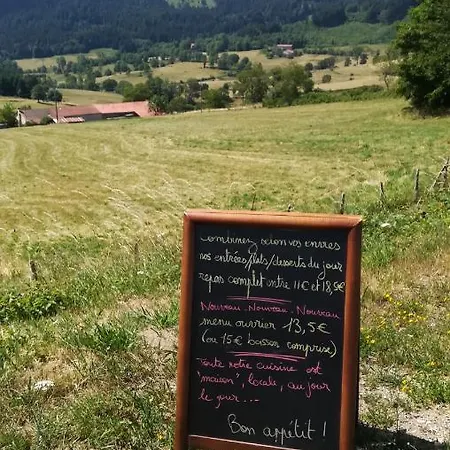 Combinez selon vos envies
nos entrées/plats/desserts du jour
repas complet entre 11€ et 18,5€
Nouveau - Nouveau - Nouveau
menu ouvrier 13,5€
(ou 15€ boisson comprise)
Toute notre cuisine est
"maison", locale, au jour
le jour...
Bon appétit !